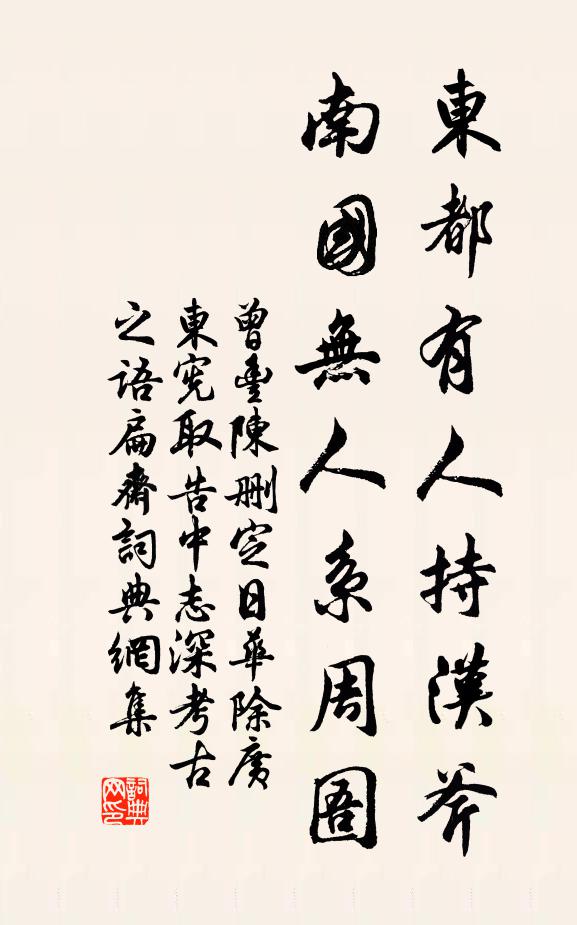 東都有人持漢斧
南國無人系周圄
曾豐陳刪定日華除廣
東宪取告中志深考古
之語扁齋詞典網集
詞典网印